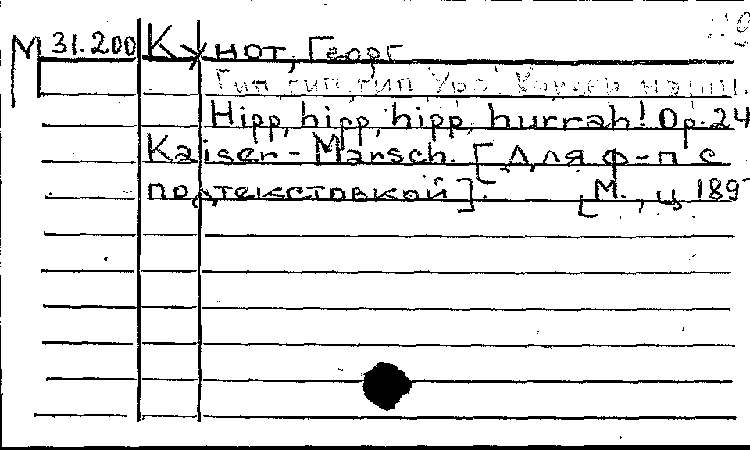 М 31.200 Кунот, Георг
Гип, гип, гип, ура! Кайзер марш.
Hipp, hipp, hipp, hurrah! Op. 24
Kaiser-Marsch. [Для ф-п с
подтекстовкой]. [М., ц 189